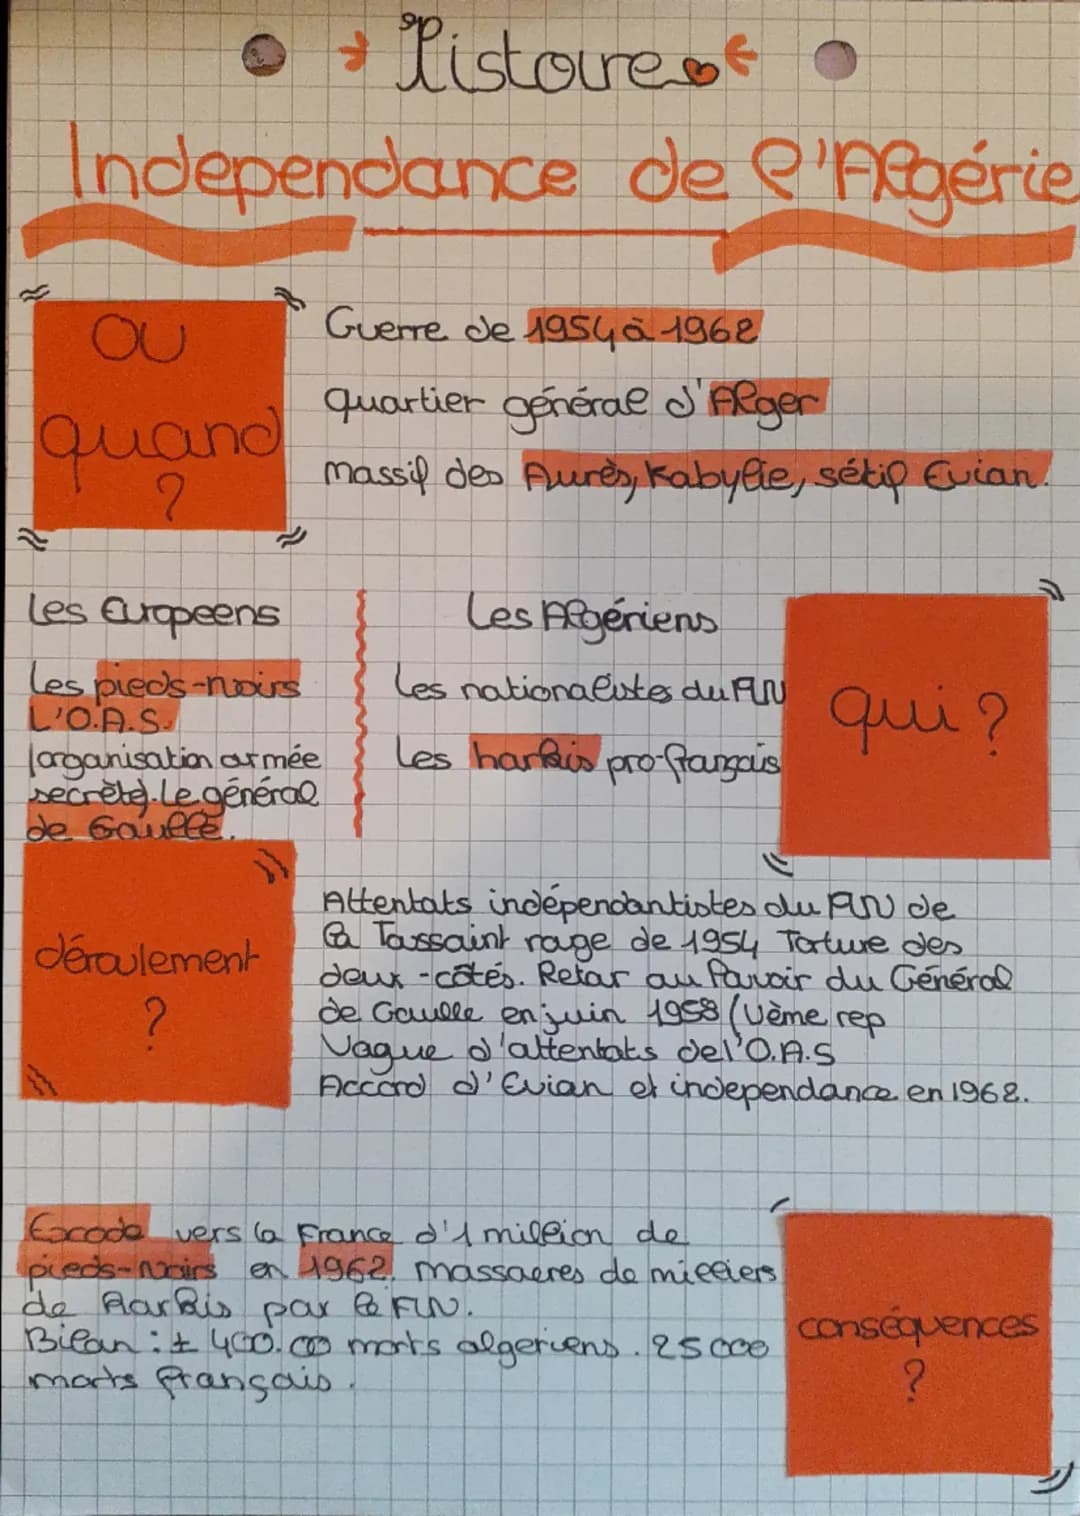 Histoire
Independance de l'Algérie
OU
quand
?
Guerre de 1954 à 1962
quartier général d'Alger
massif des Aurès, Kabylie, sétif Evian.
Les Europeens
Les pieds-noirs
L'O.A.S.
(organisation armée
secrète). Le général
de Gaulle.
Les Algériens
Les nationalistes du FLN
Les harkis pro-français
qui ?
déroulement
?
Attentats indépendantistes du FLN de
la Toussaint rouge de 1954 Torture des
deux-côtés. Retour au Pouvoir du Général
de Gaulle en juin 1958 (Vème rep
Vague d'attentats de l'O.A.S
Accord d'Evian et independance en 1962.
Exode vers la France d'1 million de
pieds-noirs en 1962. massacres de milliers
de Harkis par le FLN.
Bilan : ± 400.000 morts algeriens. 25000
morts français.
conséquences
?